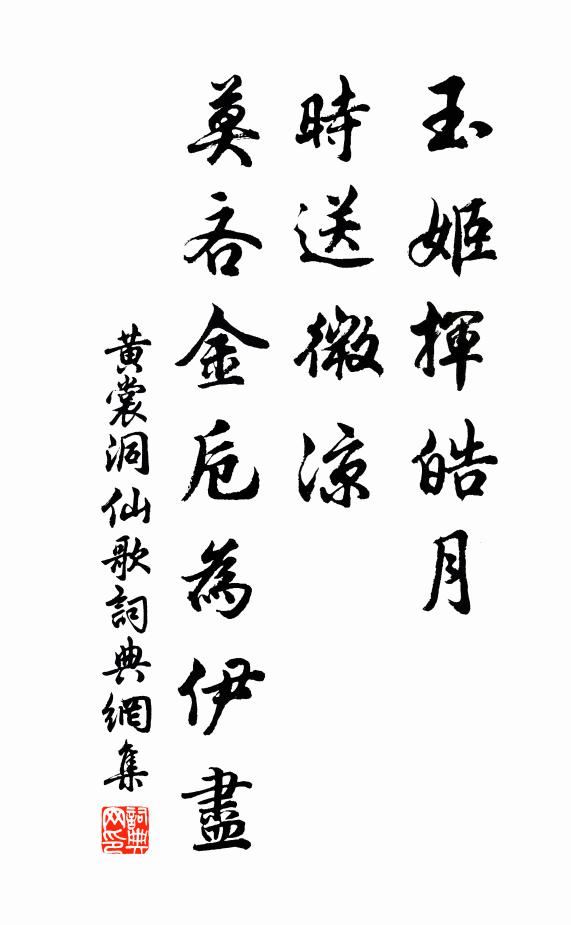 玉姬揮皓月
時送微涼
莫吝金卮為伊盡
黃裳洞仙歌詞典網集
詞典
网印